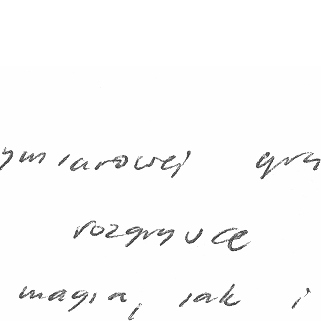 ymiarowej gry
rozgryвce
magią, jak i